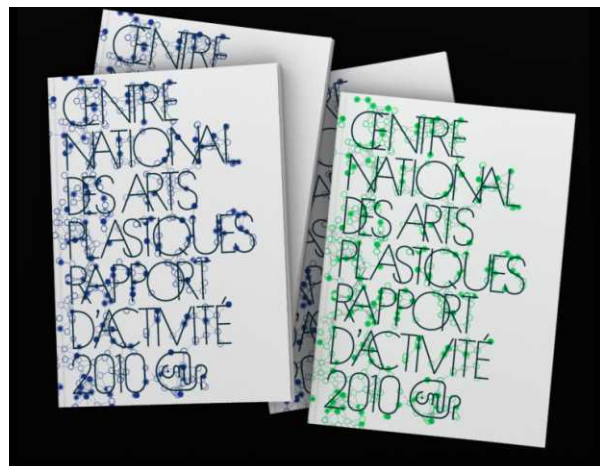 CENTRE
CENTRE
NATIONAL
DES ARTS
PLASTIQUES
RAPPORT
D'ACTIVITÉ
2010 cnap
CENTRE
NATIONAL
DES ARTS
PLASTIQUES
RAPPORT
D'ACTIVITÉ
2010 cnap